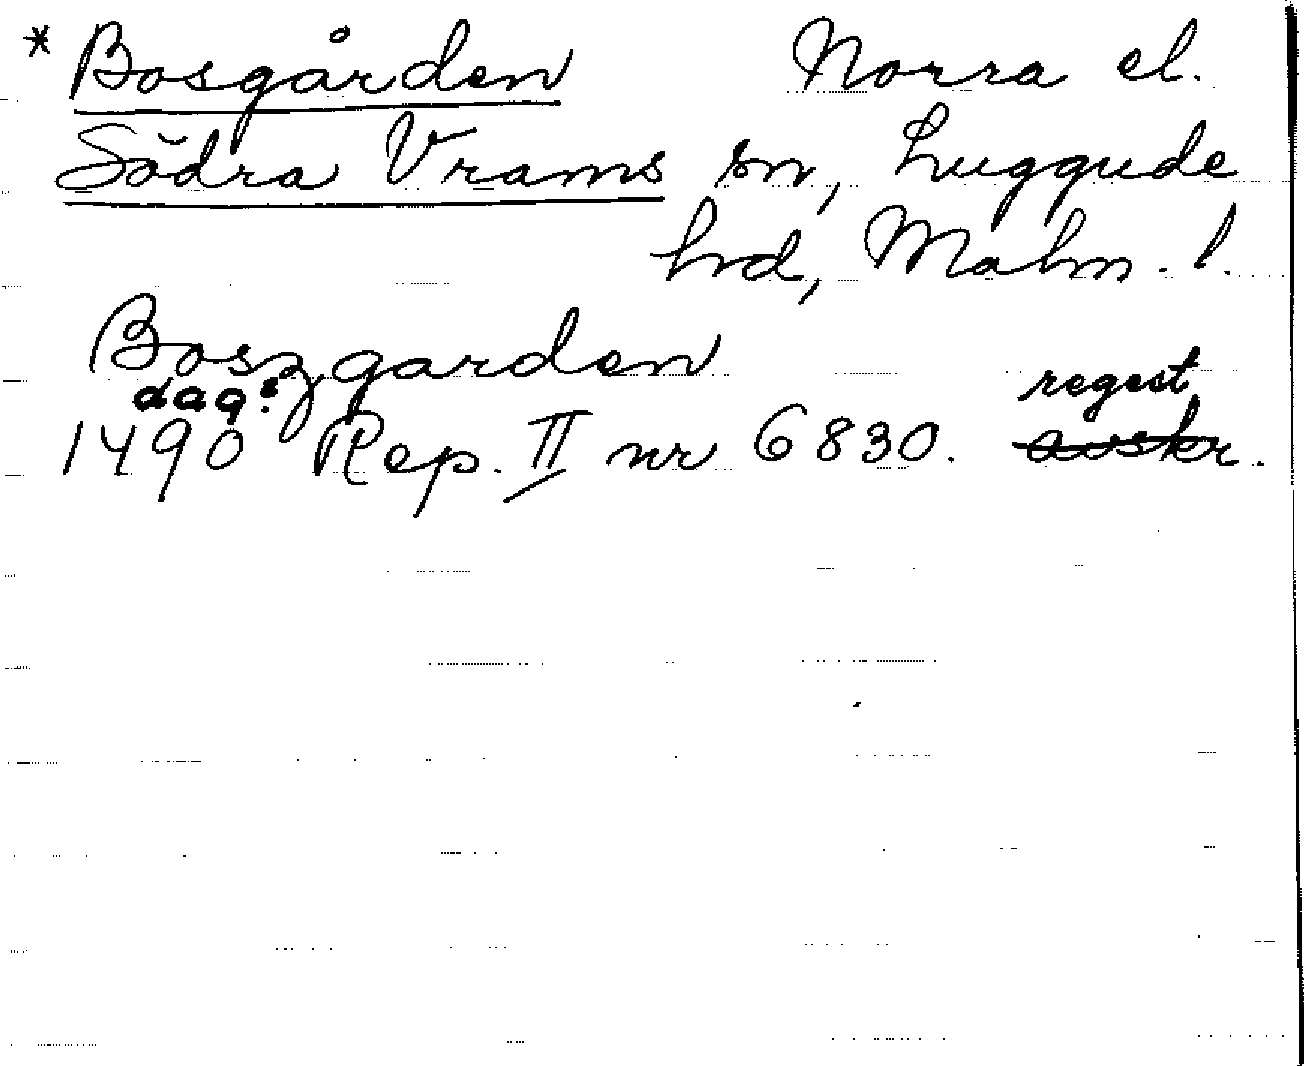 * Bosgården Norra el.
Södra Vrams sn, Luggude
hd, Malm. l.
Boszgarden
dag:
1490 Rep. II nr 6830. regest
avskr.